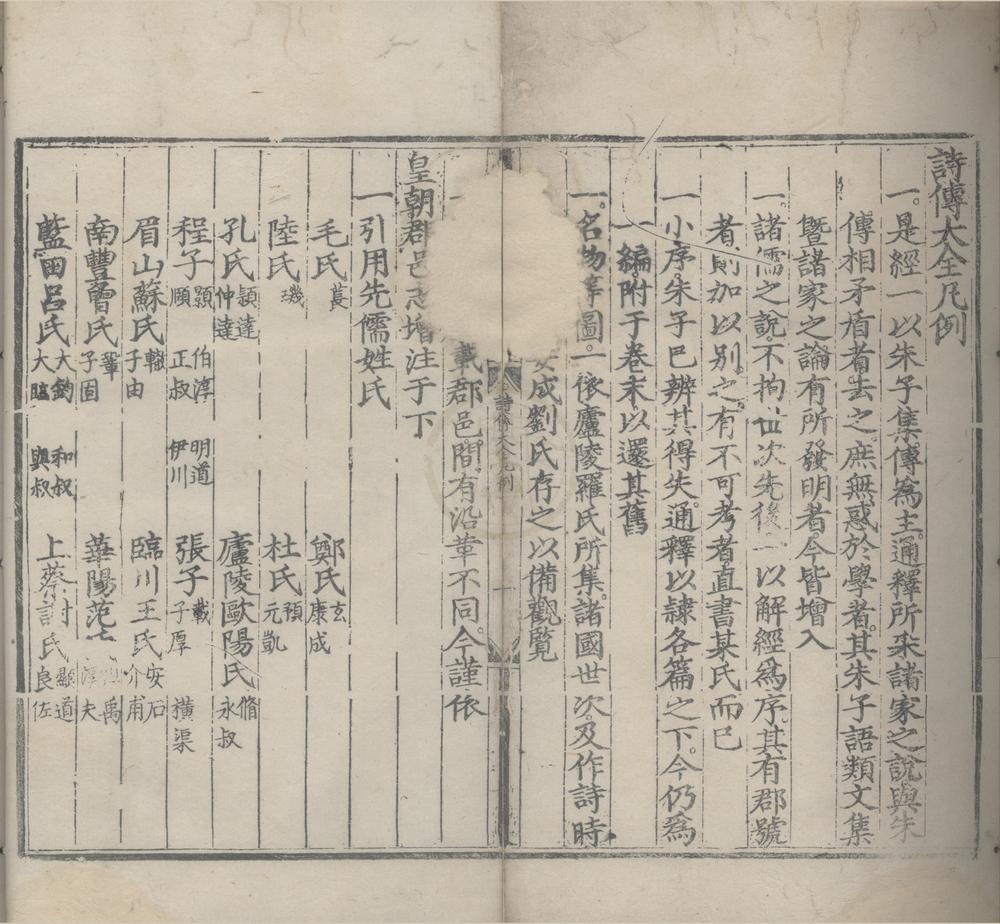 詩傳大全凡例
一。是經一以朱子集傳爲主。通釋所采諸家之說與朱
傳相矛盾者去之。庶無惑於學者。其朱子語類文集
暨諸家之論有所發明者。今皆增入
一。諸儒之說。不拘世次先後。一以解經爲序。其有郡號
者則加以別之。有不可考者直書某氏而已
一小序。朱子已辨其得失。通釋以隷各篇之下。今仍爲
一編。附于卷末以還其舊
一。名物圖。一依廬陵羅氏所集。諸國世次。及作詩時
成劉氏存之以備觀覽
詩傳大全凡例 一
載郡邑。間有沿革不同。今謹依
皇朝郡邑志增注于下
一引用先儒姓氏
毛氏 萇 鄭氏 玄 康成
陸氏 璣 杜氏 預 元凱
孔氏 穎達 仲達 廬陵歐陽氏 脩 永叔
程子 顥 伯淳 明道 頤 正叔 伊川 張子 載 子厚 橫渠
眉山蘇氏 轍 子由 臨川王氏 安石 介甫
南豐曾氏 鞏 子固 華陽范 禹 淳夫
藍田呂氏 大鈞 和叔 大臨 與叔 上蔡謝氏 顯道 良佐